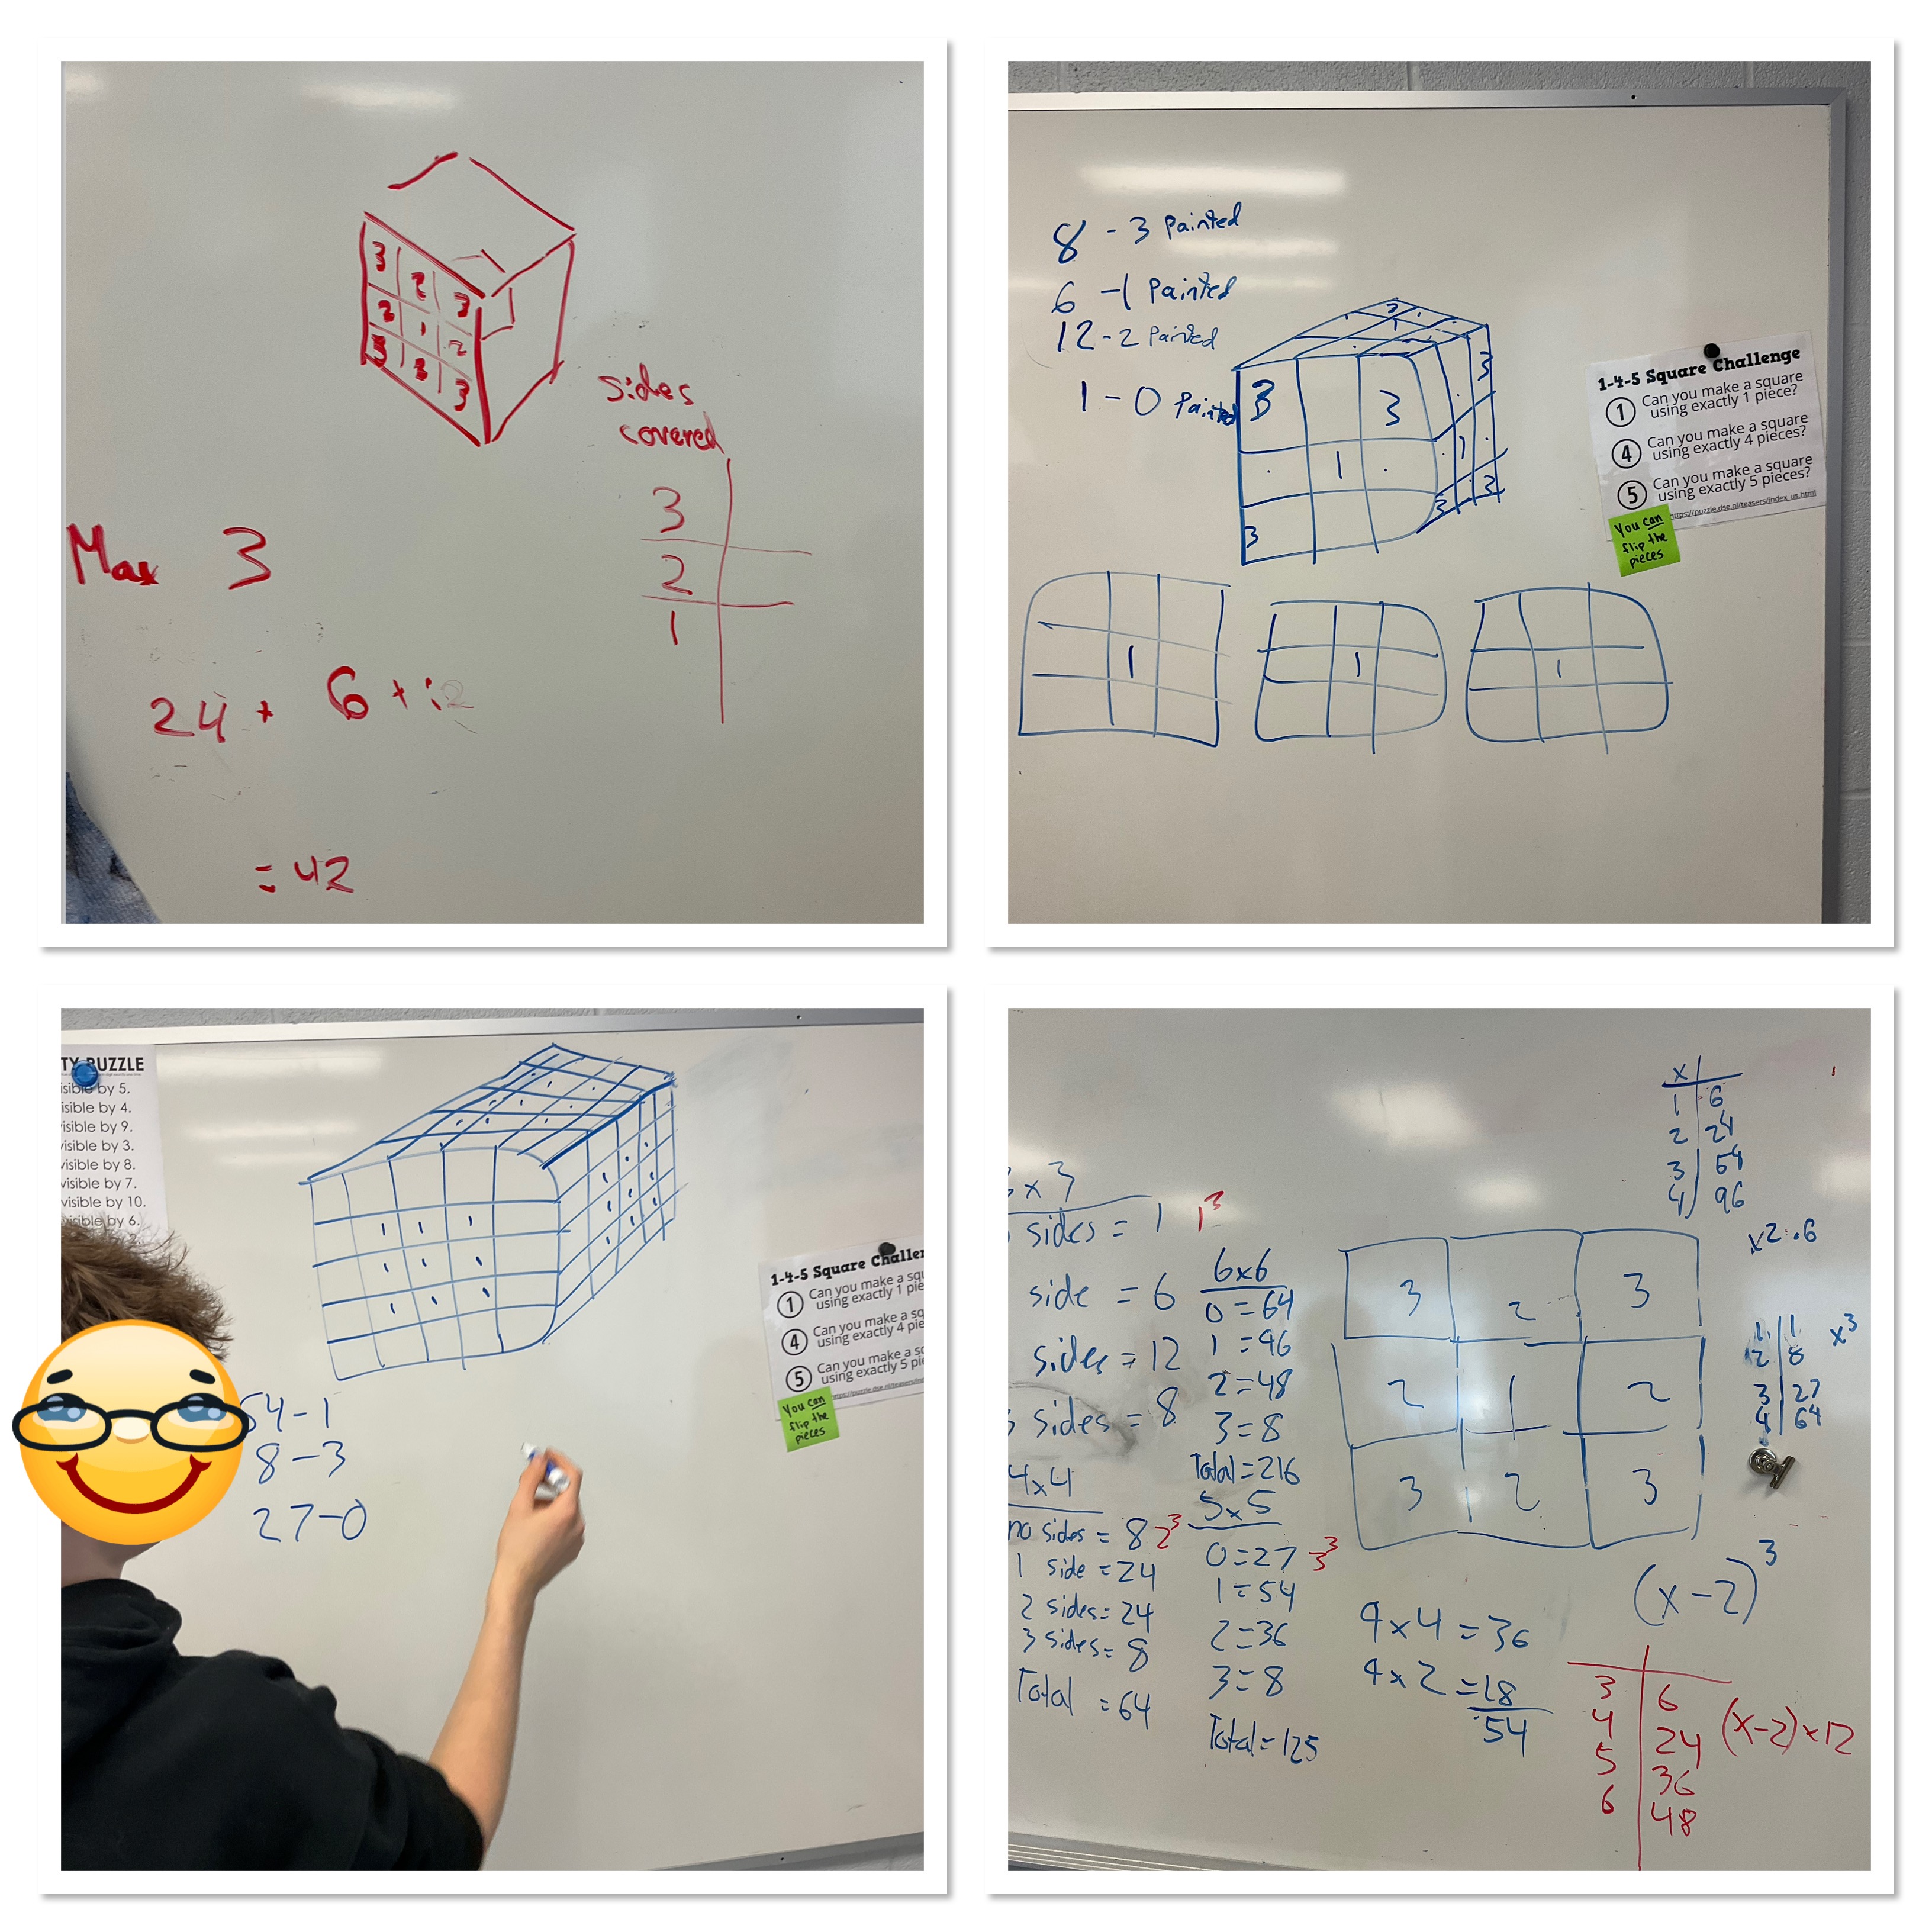 3 2 3
2 1 2
3 3 3
sides
covered
3
2
1
Max 3
24 + 6 + 12
= 42
8 - 3 Painted
6 - 1 Painted
12 - 2 Painted
1 - 0 Painted
3 3 3
1 1
3 3 3
1 1 1
1-4-5 Square Challenge
1 Can you make a square
using exactly 1 piece?
4 Can you make a square
using exactly 4 pieces?
5 Can you make a square
using exactly 5 pieces?
https://puzzle.dse.nl/teasers/index_us.html
You can
flip the
pieces
TY PUZZLE
isible by 5.
isible by 4.
isible by 9.
isible by 3.
isible by 8.
isible by 7.
visible by 10.
isible by 6.
54 - 1
8 - 3
27 - 0
1-4-5 Square Challen
1 Can you make a squ
using exactly 1 pie
4 Can you make a s
using exactly 4 pie
5 Can you make a s
using exactly 5 pi
You can
flip the
pieces
x 3
sides = 1 1³
side = 6
sides = 12
sides = 8
4x4
no sides = 8 2³
1 side = 24
2 sides = 24
3 sides = 8
Total = 64
6x6
0 = 64
1 = 96
2 = 48
3 = 8
Total = 216
5x5
0 = 27 3³
1 = 54
2 = 36
3 = 8
Total = 125
3 2 3
2 1 2
3 2 3
9 x 4 = 36
9 x 2 = 18
54
x
1 6
2 24
3 54
4 96
x² · 6
1 1
2 8
3 27
4 64
x³
(x-2)³
3 6
4 24
5 36
6 48
(x-2) x 12